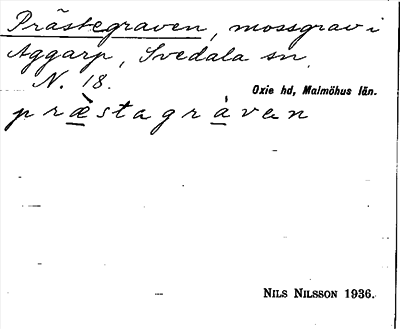 Prästegraven, mossgrav i
Aggarp, Svedala sn.
N. 18.
Oxie hd, Malmöhus län.
præ̀stagràven
NILS NILSSON 1936.